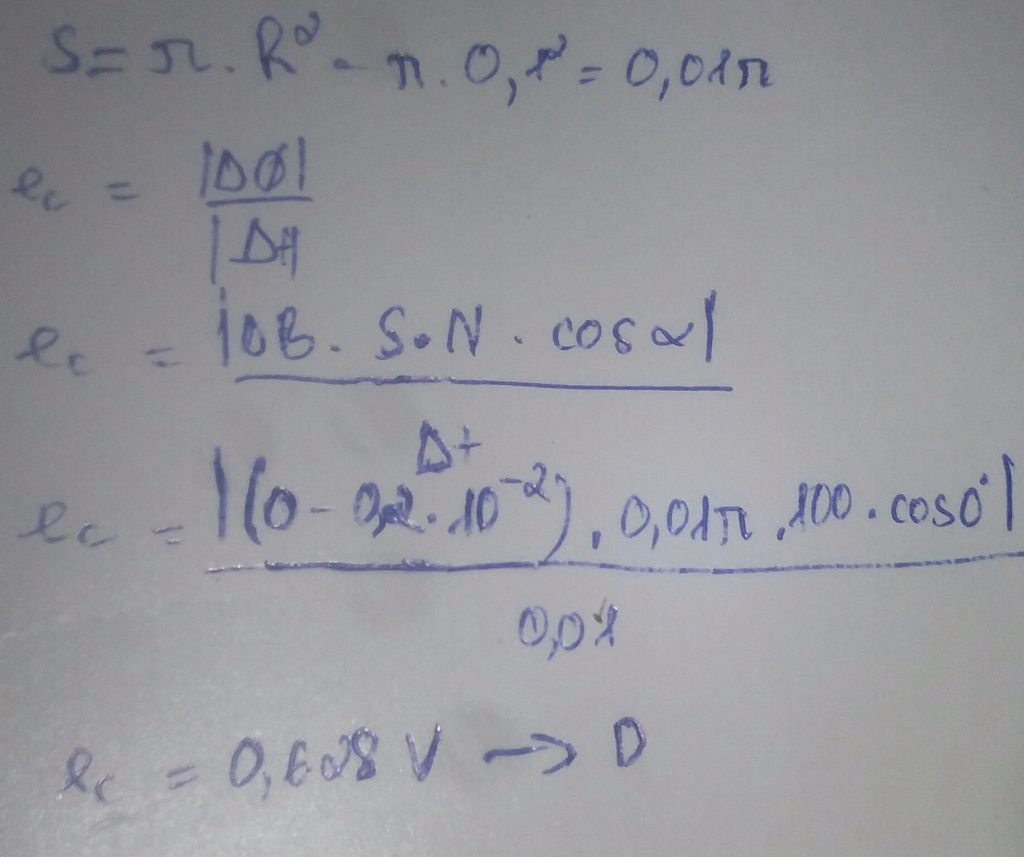 S = π. R² = π. 0,1² = 0,01π
e_c = |ΔØ|
|Δt|
e_c = |ΔB. S.N. cosα|
Δt
e_c = |(0 - 0,2.10⁻²). 0,01π.100.cos0°|
0,01
e_c = 0,628 V → D